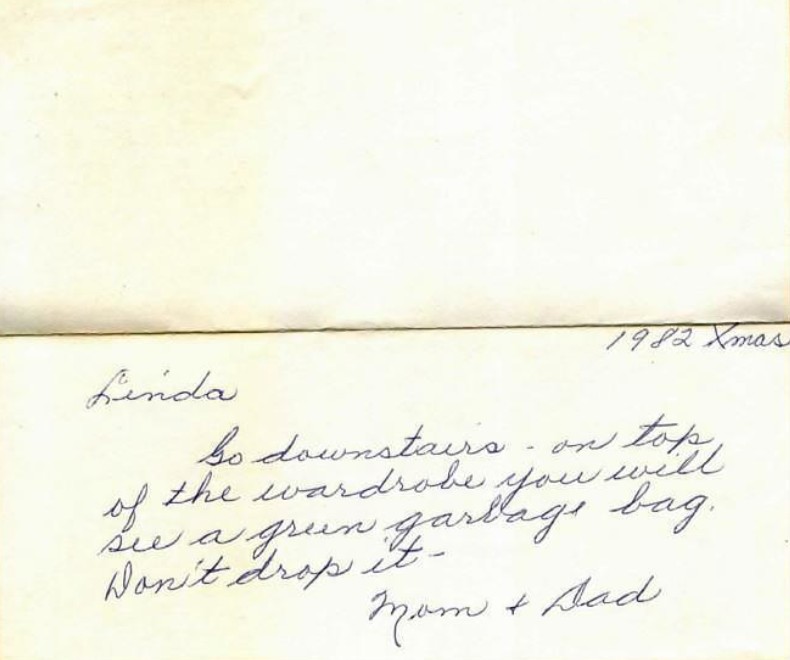 1982 Xmas
Linda
Go downstairs - on top
of the wardrobe you will
see a green garbage bag.
Don't drop it -
Mom + Dad